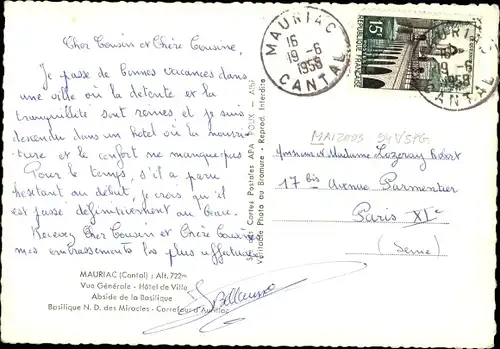 Cher Cousin et Chère Cousine,
Je passe de bonnes vacances dans
une ville où la détente et la
tranquilité sont reines, et je suis
descendu dans un hôtel où la nourri-
ture et le confort ne manque pas
Pour le temps, s'il a paru
hésitant au début, je crois qu'il
est passé définitivement au beau.
Recevez Cher Cousin et Chère Cousine
mes embrassements les plus affectueux
MAURIAC (Cantal) : Alt. 722m
Vue Générale - Hôtel de Ville
Abside de la Basilique
Basilique N. D. des Miracles - Carrefour d'Aurillac
Cartes Postales APA POUX - Albi
Véritable Photo au Bromure - Reprod. Interdite
MAURIAC
16
19-6
1958
CANTAL
15F
REPUBLIQUE FRANÇAISE
19-6
1958
CANTAL
MAI2003
Monsieur et Madame Lozeray Robert
17 bis Avenue Parmentier
Paris XIe
(Seine)